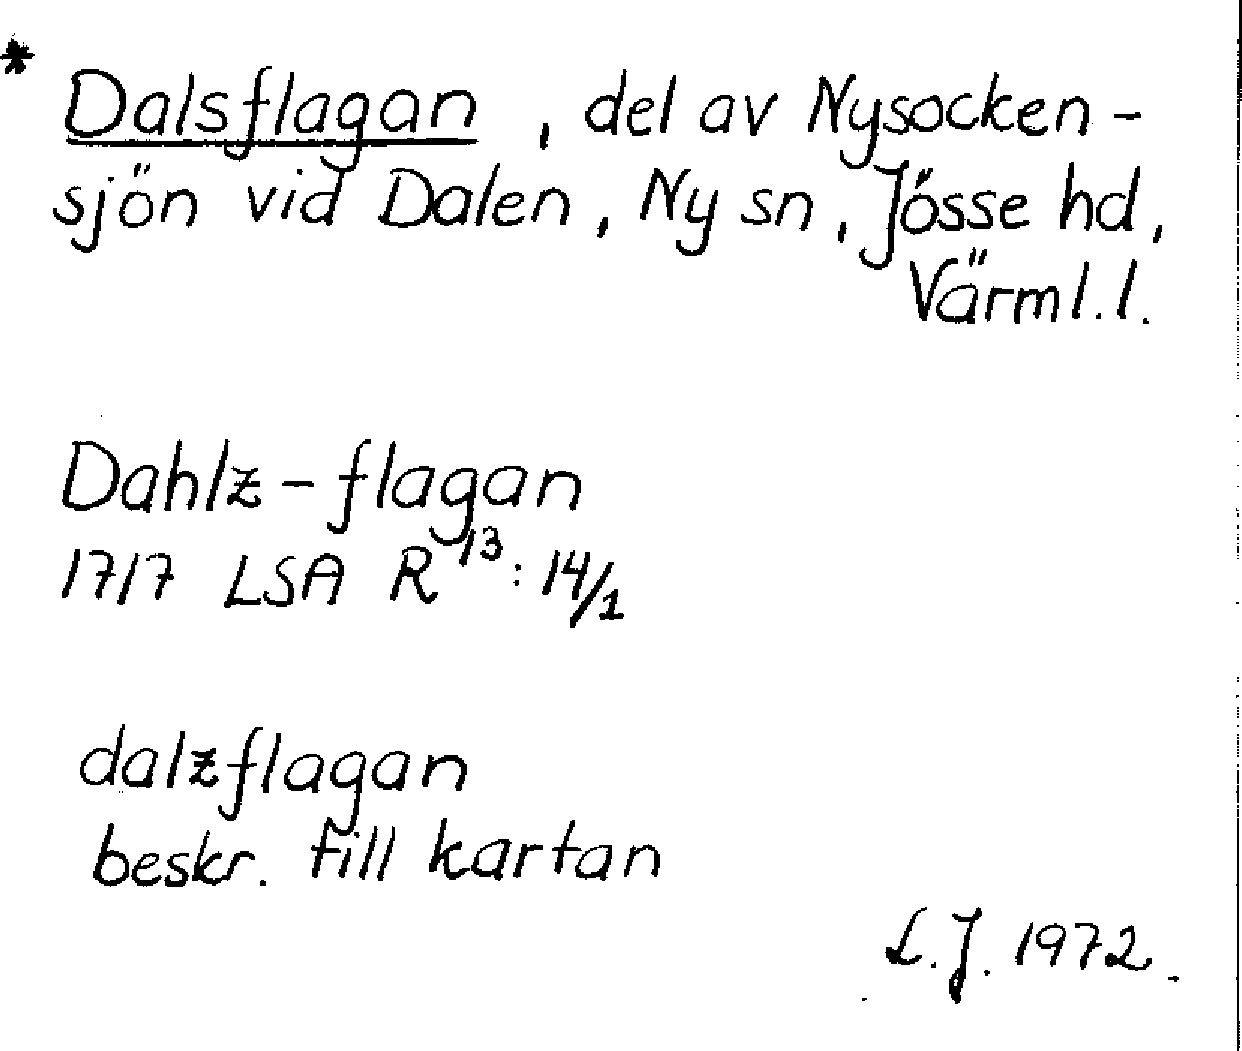 * Dalsflagan, del av Nysocken-
sjön vid Dalen, Ny sn, Jösse hd,
Värml.l.
Dahlz-flagan
1717 LSA R 13:14/1
dalzflagan
beskr. till kartan
L.J. 1972.